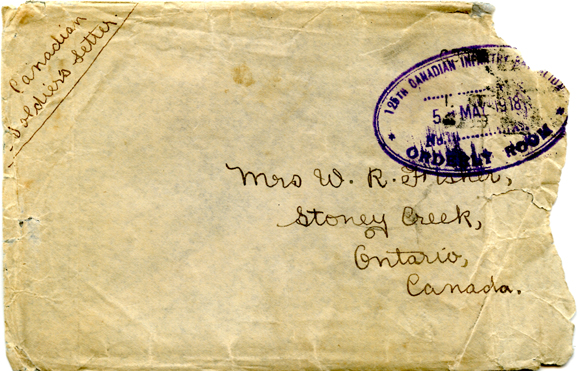 Canadian
Soldiers Letter.
125TH CANADIAN INFANTRY BATTALION
5 MAY 1918
No.
ORDERLY ROOM
Mrs W. R. Fisher,
Stoney Creek,
Ontario,
Canada.